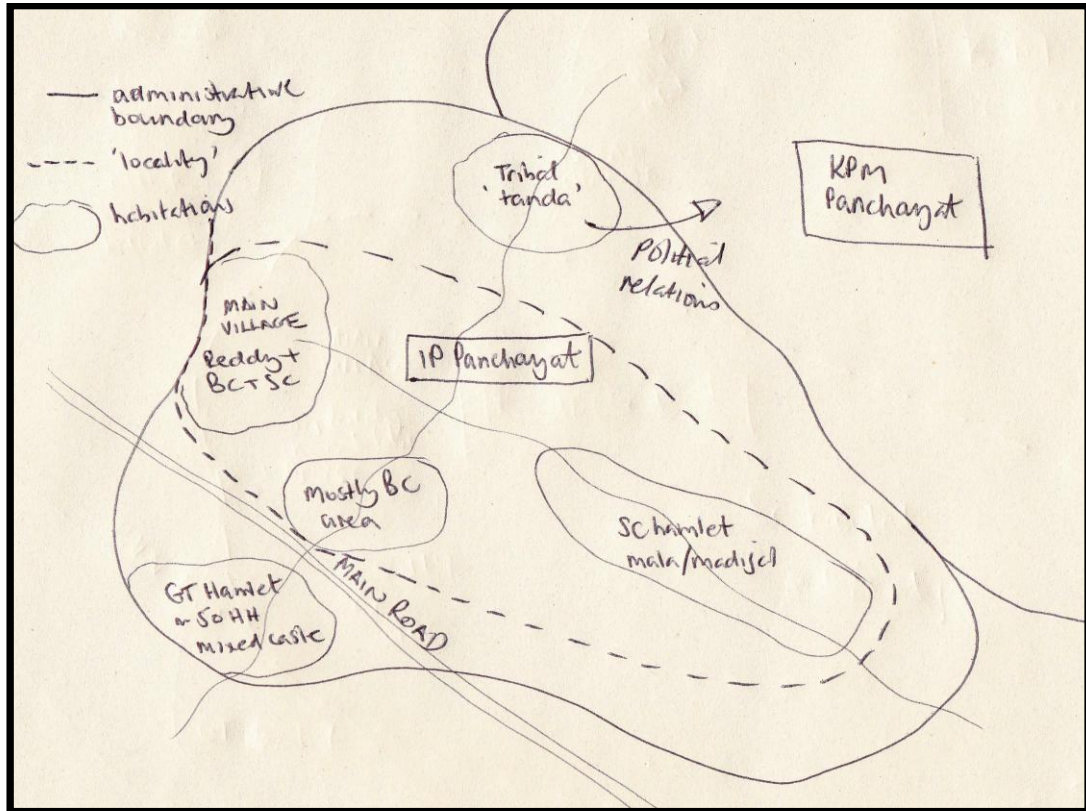 administrative
boundary
'locality'
habitations
Tribal
'tanda'
KPM
Panchayat
Political
relations
MAIN
VILLAGE
Reddy +
BC + SC
IP Panchayat
Mostly BC
area
SC hamlet
mala/madiga
MAIN ROAD
GT Hamlet
~ 50 HH
mixed caste